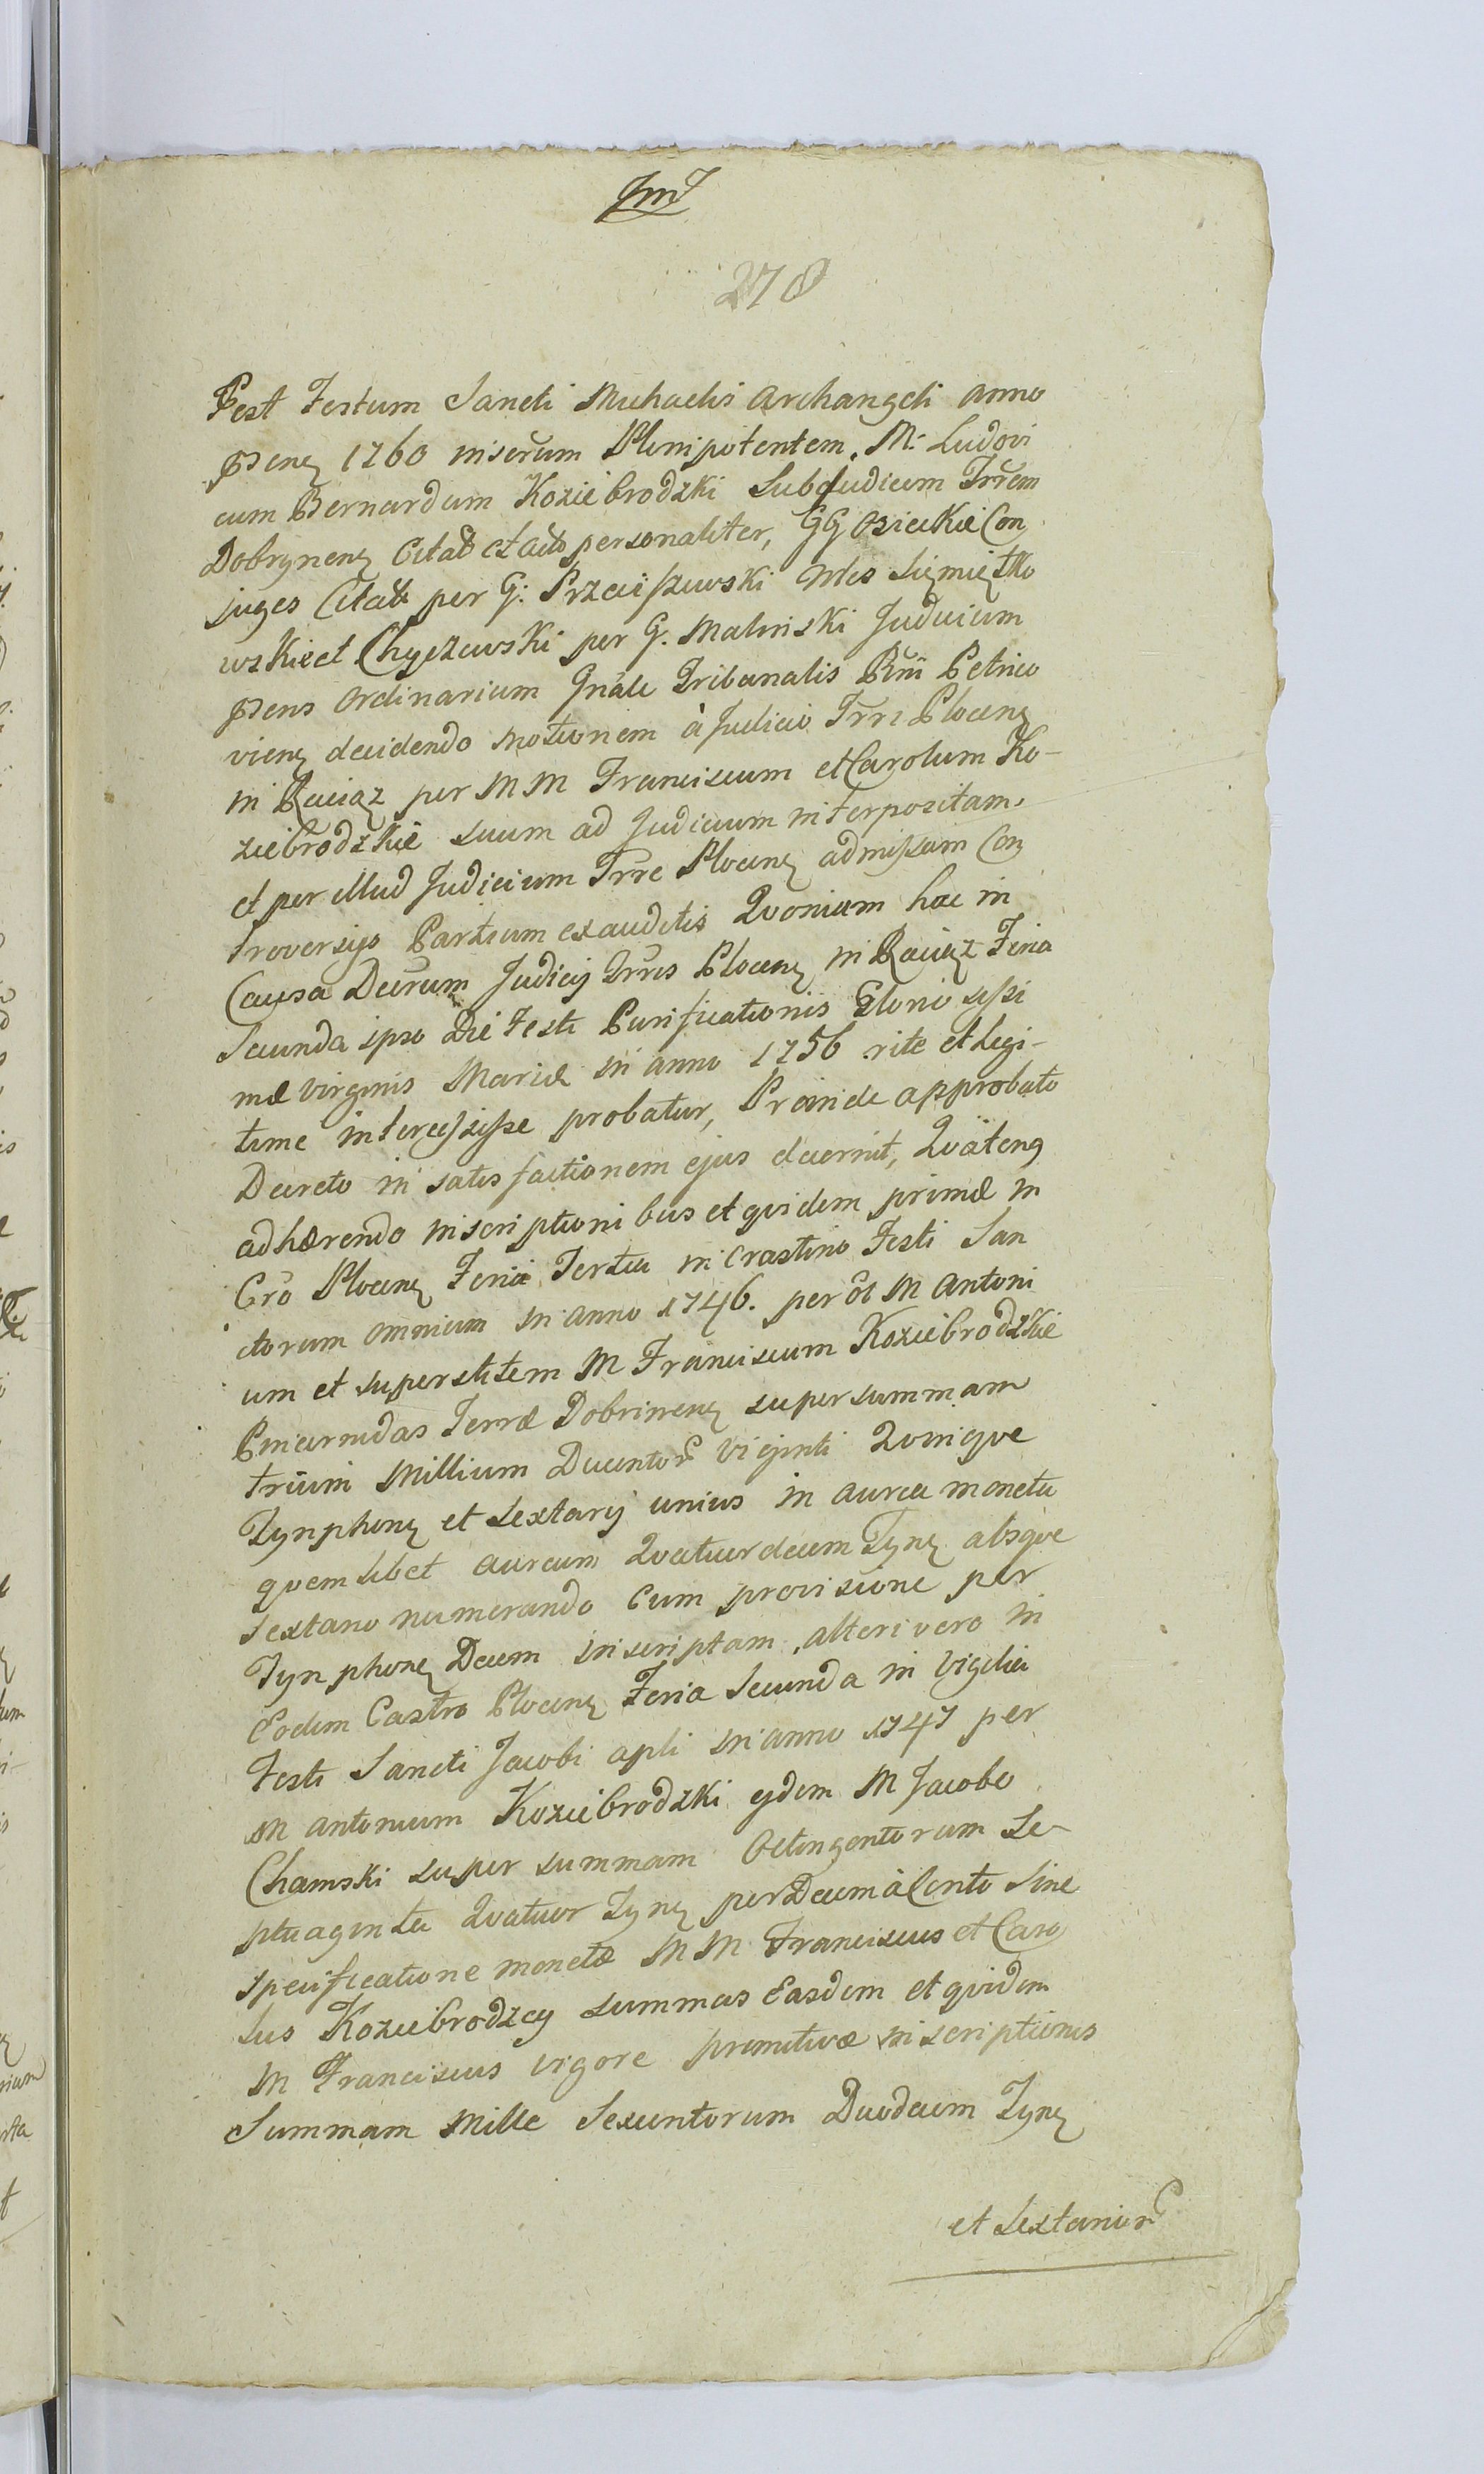 JmJ
278
Post Festum Sancti Michaelis Archangeli anno
psenz 1760 insertum Plenipotentem. M. Ludovi
cum Bernardum Koziebrodzki Subjudicem Trrem
Dobrynenz Citato et acto personaliter, GG Osieckie Con
juges Citatos per G: Przeciszewski Nbles Siemiętko
wskie et Chyczewski per G. Malinski Judicium
psens Ordinarium Gnale Tribunalis Rni Petrico
vienz decidendo motionem à Judicio Trri Plocenz
in Raciąz per MM Franciscum et Carolum Ko-
ziebrodzkie suum ad Judicium interpositam,
et per illud Judicium Trre Plocenz admissam Con
troversijs Partium exauditis Qvoniam hac in
Causa Decrum Judicij Trris Plocenz in Raciąz Feria
Secunda ipso Die Festi Purificationis Glorio sissi
mæ Virginis Mariæ in anno 1756 rite et Legi-
time intercessisse probatur, Proinde approbato
Decreto in satisfactionem ejus decernit, Qvatenq
adhærendo inscriptionibus et qvidem primæ in
Cro Plocenz Feria Tertia in Crastino Festi San
ctorum Omnium in Anno 1746. per ol M Antoni
um et superstitem M Franciscum Koziebrodzkie
Pincernidas Terræ Dobrinenz super summam
trium Millium Ducentor Viginti Qvinqve
Tynphonz et Sextarij unius in aurea moneta
qvemlibet aureum Qvatuordecim Tynz absqve
Sextano numerando cum provisione per
Tynphonz Decem inscriptam, alteri vero in
Eodem Castro Plocenz Feria Secunda in Vigilia
Festi Sancti Jacobi apli in anno 1747 per
M Antonium Koziebrodzki ejdem M Jacobo
Chamski super summam Octingentorum Se-
ptuaginta Qvatuor Tynz per Decem à Cento Sine
specificatione monetæ MM Franciscus et Caro
lus Koziebrodzcy summas Easdem et qvidem
M Franciscus vigore primitivæ inscriptionis
Summam Mille Sexcentorum Duodecim Tynz
et Sextanior